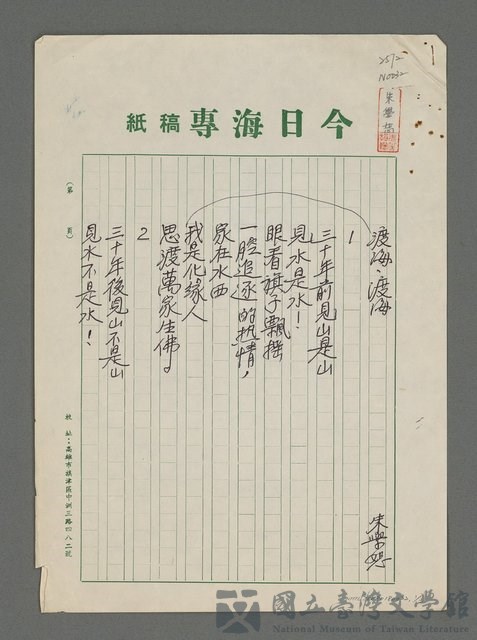 2572
今日海專稿紙
朱學恕
渡海、渡海
1
三十年前見山是山
見水是水！
眼看旗子飄搖
一腔追逐的熱情，
家在水西
我是化緣人
思渡萬家生佛。
2
三十年後見山不是山
見水不是水！
朱學恕
（第 頁）
校址：高雄市旗津區中洲三路四八二號
國立臺灣文學館
National Museum of Taiwan Literature